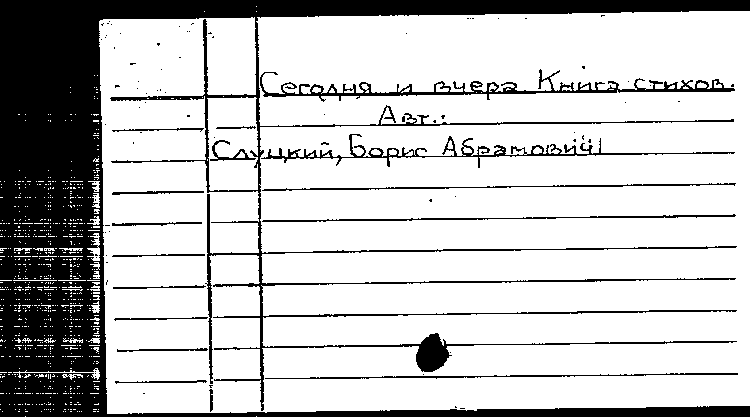 Сегодня и вчера Книга стихов.
Авт.:
Слуцкий, Борис Абрамович